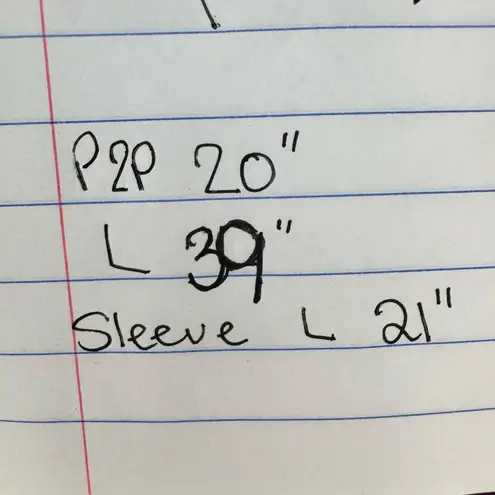 P2P 20"
L 39"
Sleeve L 21"